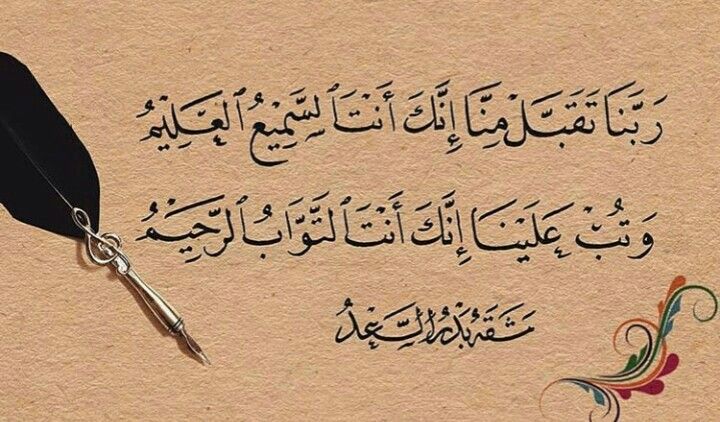 رَبَّنَا تَقَبَّلْ مِنَّا إِنَّكَ أَنْتَ ٱلسَّمِيعُ ٱلْعَلِيمُ
وَتُبْ عَلَيْنَا إِنَّكَ أَنْتَ ٱلتَّوَّابُ ٱلرَّحِيمُ
مَشَقَهُ بَدْرُ السَّعْدُ